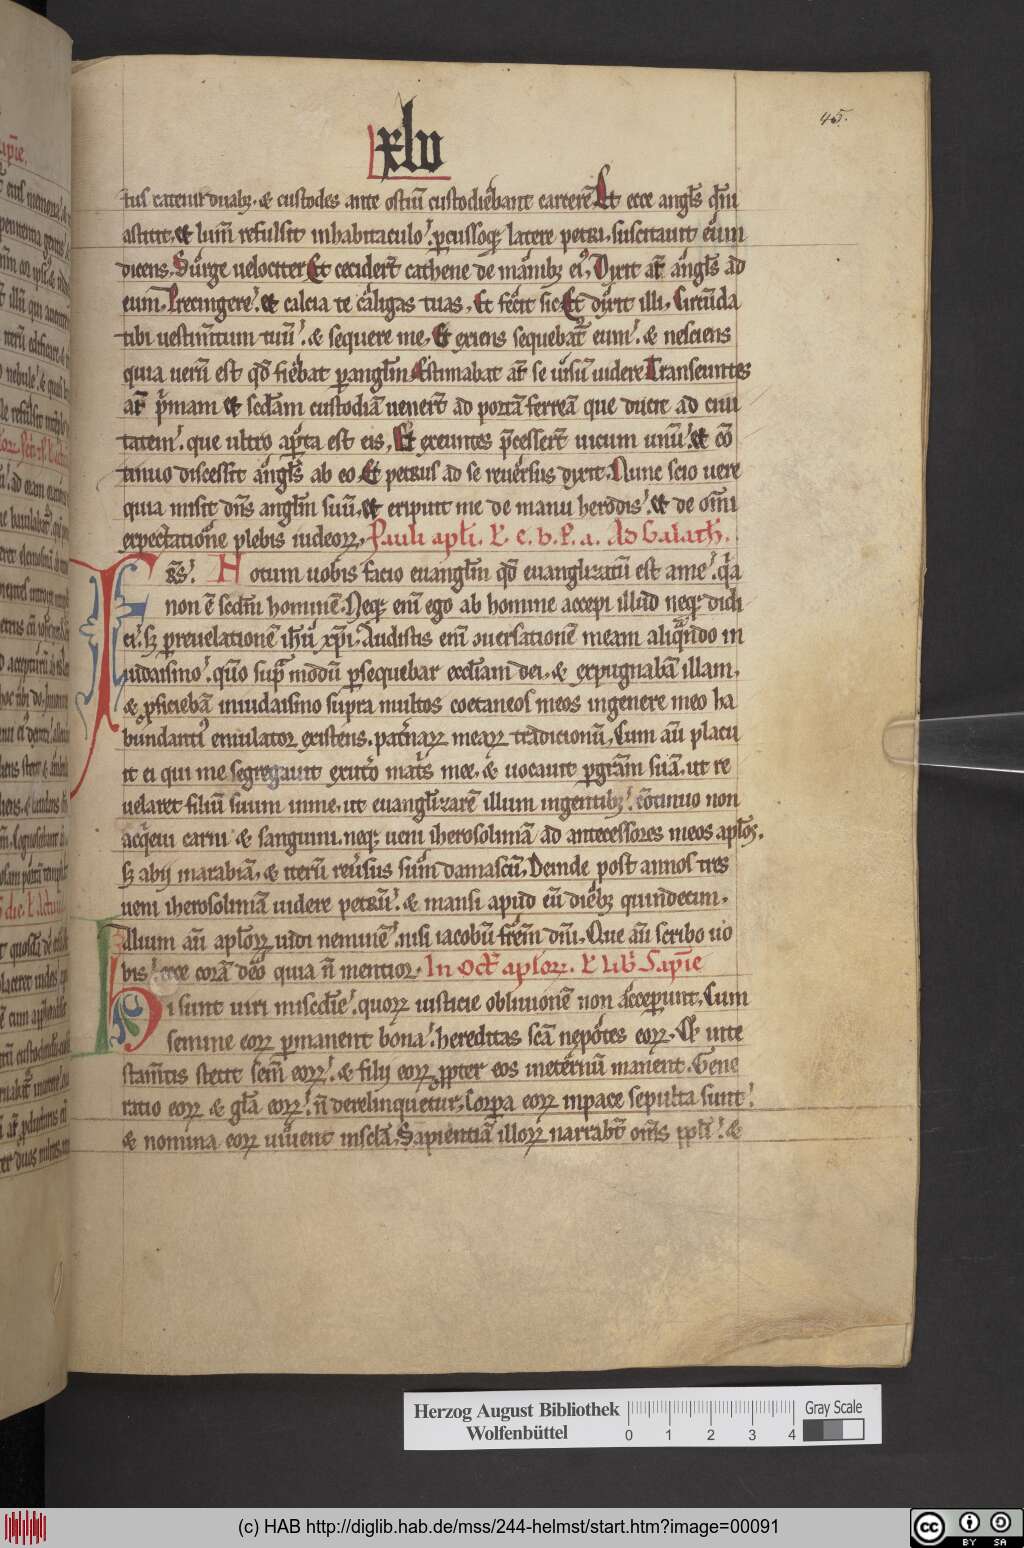 45.
xlv
tus catenis duabꝫ. & custodes ante ostiū custodiebant carcerē. Et ecce angls̄ dn̄i
astitit. et lum̄ refulsit inhabitaculo. ꝑcussoqꝫ latere petri. suscitauit eum
dicens. Surge uelociter. Et cecider̄t cathene de manibꝫ eiꝰ. Dixit aū angls̄ ad
eum. Precingere. et calcia te caligas tuas. Et fecit sic. Et dixit illi. Circūda
tibi uestim̄tum tuū. & sequere me. Et exiens sequebat̄ eum. & nesciens
quia uerū est qd̄ fiebat ꝑ anglm̄. Estimabat aū se uisū uidere. Transeuntes
aū pͥmam et scd̄am custodiā uener̄t ad portā ferreā que ducit ad ciui
tatem. que ultro aꝑta est eis. Et exeuntes p̄cesser̄t uicum unū. et cō
tinuo discessit angls̄ ab eo. Et petrus ad se reuersus dixit. Nunc scio uere
quia misit dn̄s anglm̄ suū. et eripuit me de manu herodis. et de om̄i
expectatione plebis iudeoꝝ. Pauli apli. L e. b. P. a. Ad Galath̄.
Fr̄s. Notum uobis facio euanglm̄ qd̄ euanglizatū est a me. qͥa
non ē scdm̄ hominē. Neqꝫ enī ego ab homine accepi illud neqꝫ didi
ci. sꝫ ꝑ reuelationē ih̄u xp̄i. Audistis enī ɔuersationē meam aliqͣndo in
iudaismo. qm̄ supͣ modū ꝑsequebar eccl̄iam dei. & expugnabā illam.
& ꝓficiebā iniudaismo supra multos coetaneos meos ingenere meo ha
bundantiꝰ emulator existens. pat̄naꝝ meaꝝ tradicionū. Cum aū placu
it ei qui me segregauit ex utͦo mat̄s mee. & uocauit ꝑ grām suā. ut re
uelaret filiū suum inme. ut euanglizarē illum ingentibꝫ. cōtinuo non
acqͥeui carni & sanguini. neqꝫ ueni iherosolimā ad antecessores meos aplos.
sꝫ abij inarabiā. & iterū reuersus sum damascū. Deinde post annos tres
ueni iherosolimā uidere petrū. & mansi apud eū diebꝫ quindecim.
Alium aū aploꝝ uidi neminē. nisi iacobū fr̄em dn̄i. Que aū scribo uo
bis. ecce corā deo quia n̄ mentior. In Oct̄ aploꝝ. L Lib̄ Sapīe
Hi sunt uiri misc̄die. quoꝝ iusticie obliuionē non acceperunt. Cum
semine eoꝝ ꝑmanent bona. hereditas scā nepotes eoꝝ. & inte
stam̄tis stetit sem̄ eoꝝ. & filij eoꝝ ꝓpter eos ineternū manent. Gene
ratio eoꝝ & gl̄a eoꝝ. n̄ derelinquetur. Corꝑa eoꝝ inpace sepulta sunt.
& nomina eoꝝ uiuent inscl̄a. Sapientiā illoꝝ narrabt̄ om̄s ppl̄i. &
Herzog August Bibliothek
Wolfenbüttel
0 1 2 3 4
Gray Scale
(c) HAB http://diglib.hab.de/mss/244-helmst/start.htm?image=00091
cc BY SA